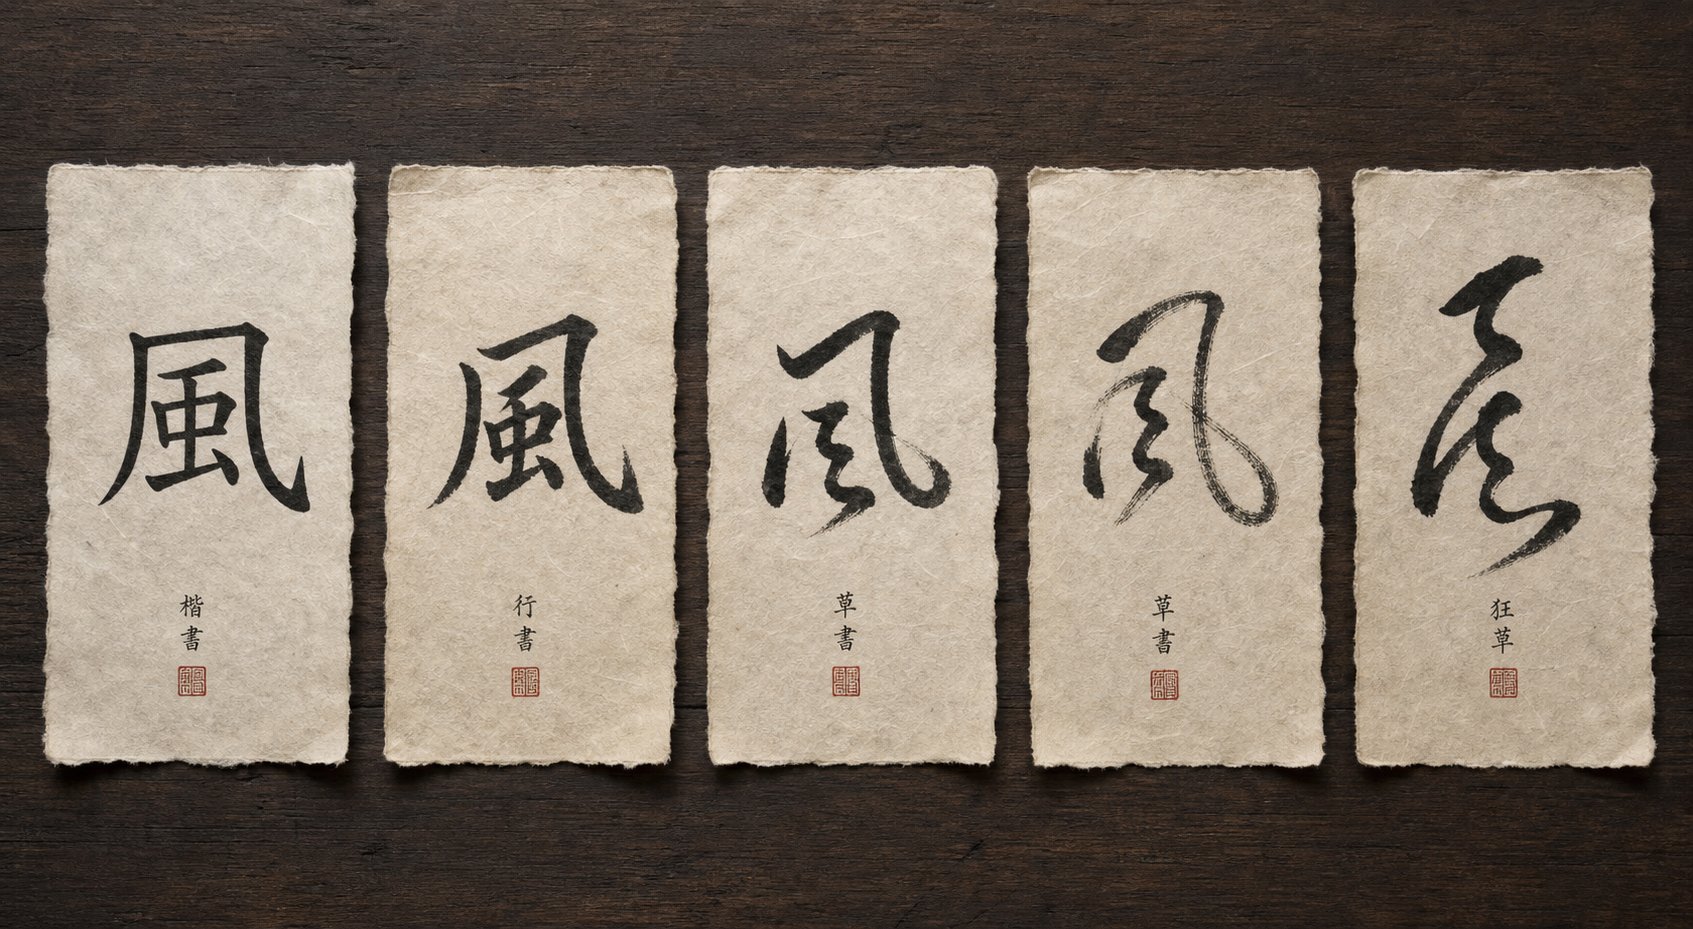 風
楷書
風
行書
風
草書
風
草書
狂草